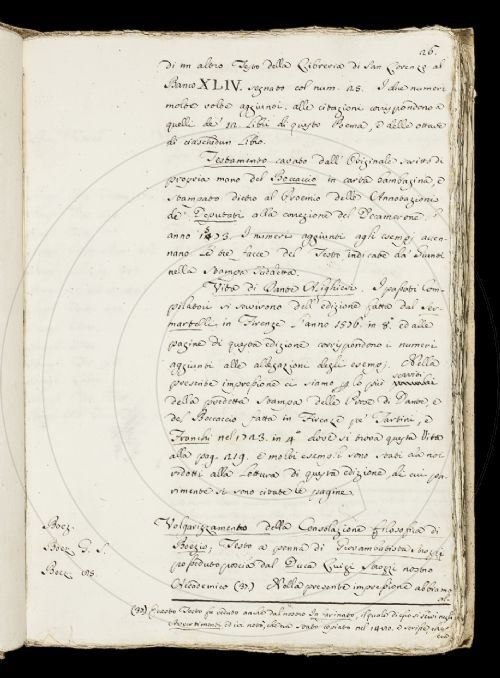 26.
di un altro Testo della Libreria di San Lorenzo al
Banco XLIV. segnato col num. 25. I due numeri
molte volte aggiunti alle citazione corrispondono a
quelli de' 12 Libri di questo Poema, e delle ottave
di ciaschedun Libro.
Testamento cavato dall' Originale scritto di
propria mano del Boccaccio in carta bambagina, e
stampato dietro al Proemio delle Annotazioni
de' Deputati alla correzione del Decamerone l'
anno 1573. I numeri aggiunti agli esempj accen-
nano le tre facce del Testo indicate da' Giunti
nella stampa suddetta.
Vita di Dante Alighieri. I passati Com-
pilatori si servirono dell' edizione fatta dal Ser-
martelli in Firenze l'anno 1576. in 8. ed alle
pagine di questa edizione corrispondono i numeri
aggiunti alle allegazioni degli esempj. Nella
presente impressione ci siamo per lo più serviti
della predetta stampa delle Prose di Dante, e
del Boccaccio fatta in Firenze pe' Tartini, e
Franchi nel 1723. in 4° dove si trova questa Vita
alla pag. 219. e molti esempli sono stati da noi
ridotti alla lettura di questa edizione, di cui pa-
rimente si sono citate le pagine.
Boez. Volgarizzamento della Consolazione filosofica di
Boez. G. S. Boezio, Testo a penna di Giovambatista Strozzi
Boez. 
posseduto poscia dal Duca Luigi Strozzi nostro
Accademico (37) Nella presente impressione abbiamo
(37) Questo Testo fu veduto anche dal nostro Inferrinato, il quale di esso si servì negli
Avvertimenti, ed ivi nota, che era stato copiato nel 1400. e scrive